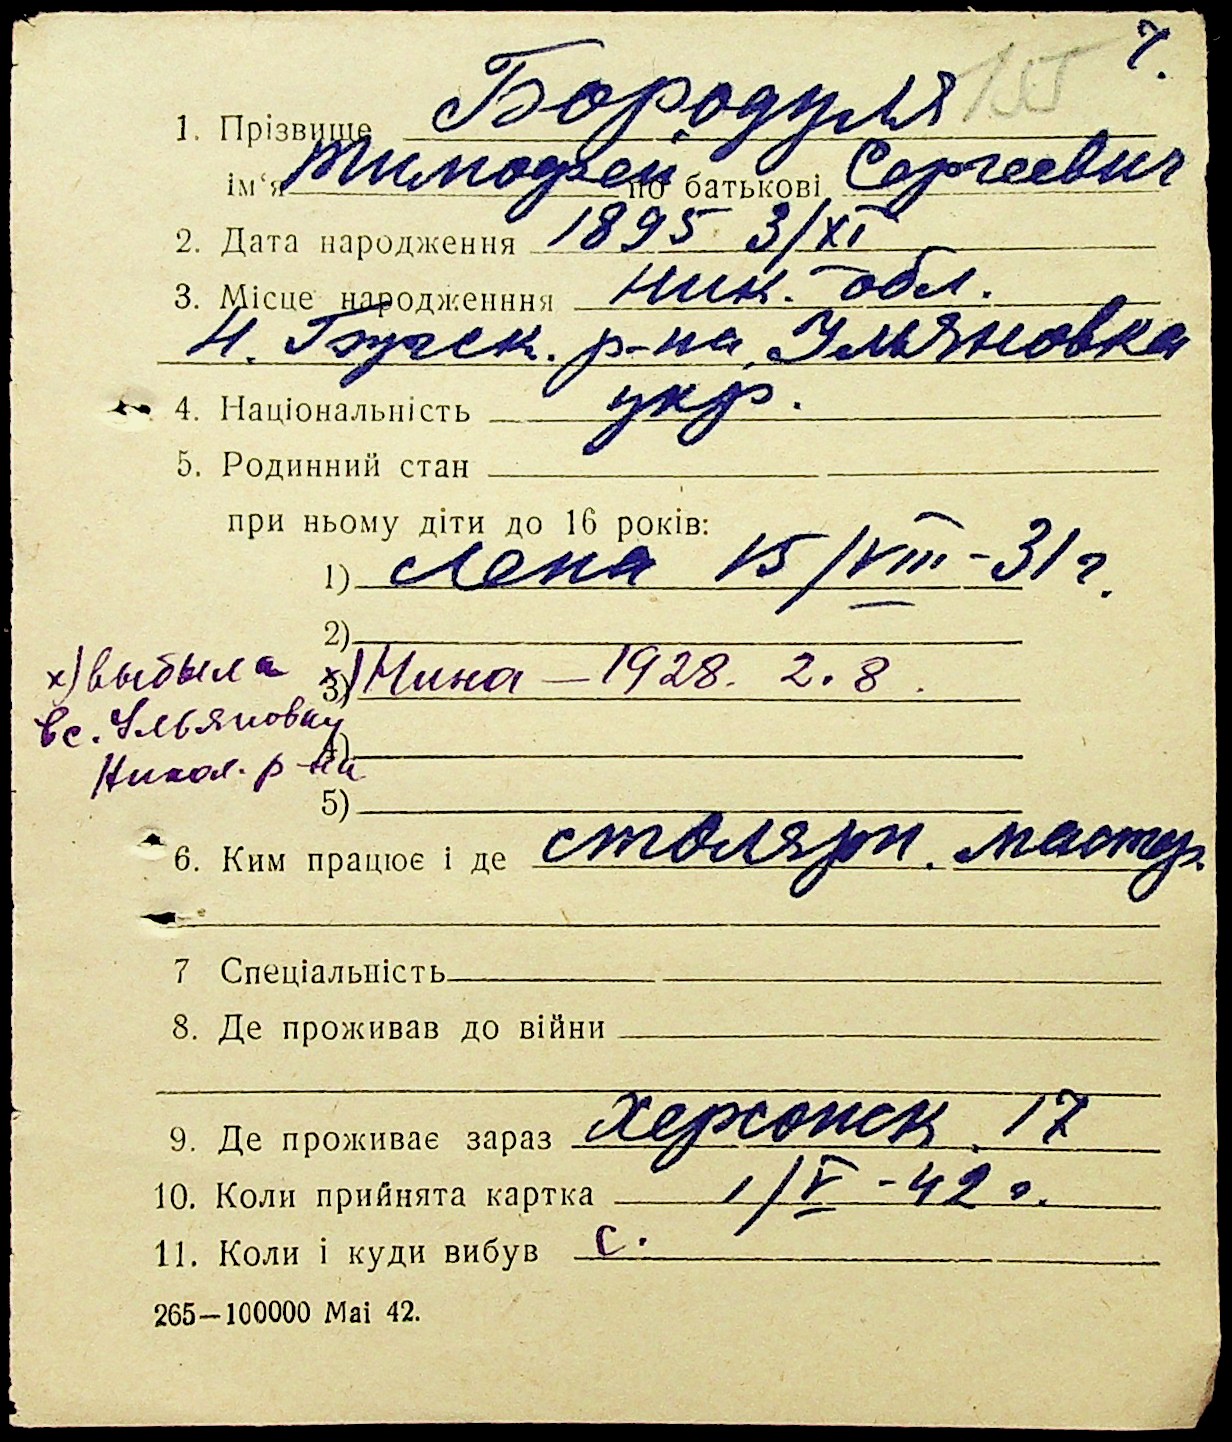 7.
155
1. Прізвище Бородуля
ім'я Тимофей по батькові Сергеевич
2. Дата народження 1895 3/XI
3. Місце народженння Ник. обл.
Н. Бугск. р-на, Ульяновка
4. Національність укр.
5. Родинний стан
при ньому діти до 16 років:
1) Лена 15/VIII-31 г.
2)
х) выбыла х) 3) Нина - 1928. 2. 8.
в с. Ульяновку
4)
Никол. р-на
5)
6. Ким працює і де столярн. мастер.
7 Спеціальність
8. Де проживав до війни
9. Де проживає зараз Херсонск. 17
10. Коли прийнята картка 1/V-42 г.
11. Коли і куди вибув с.
265—100000 Mai 42.